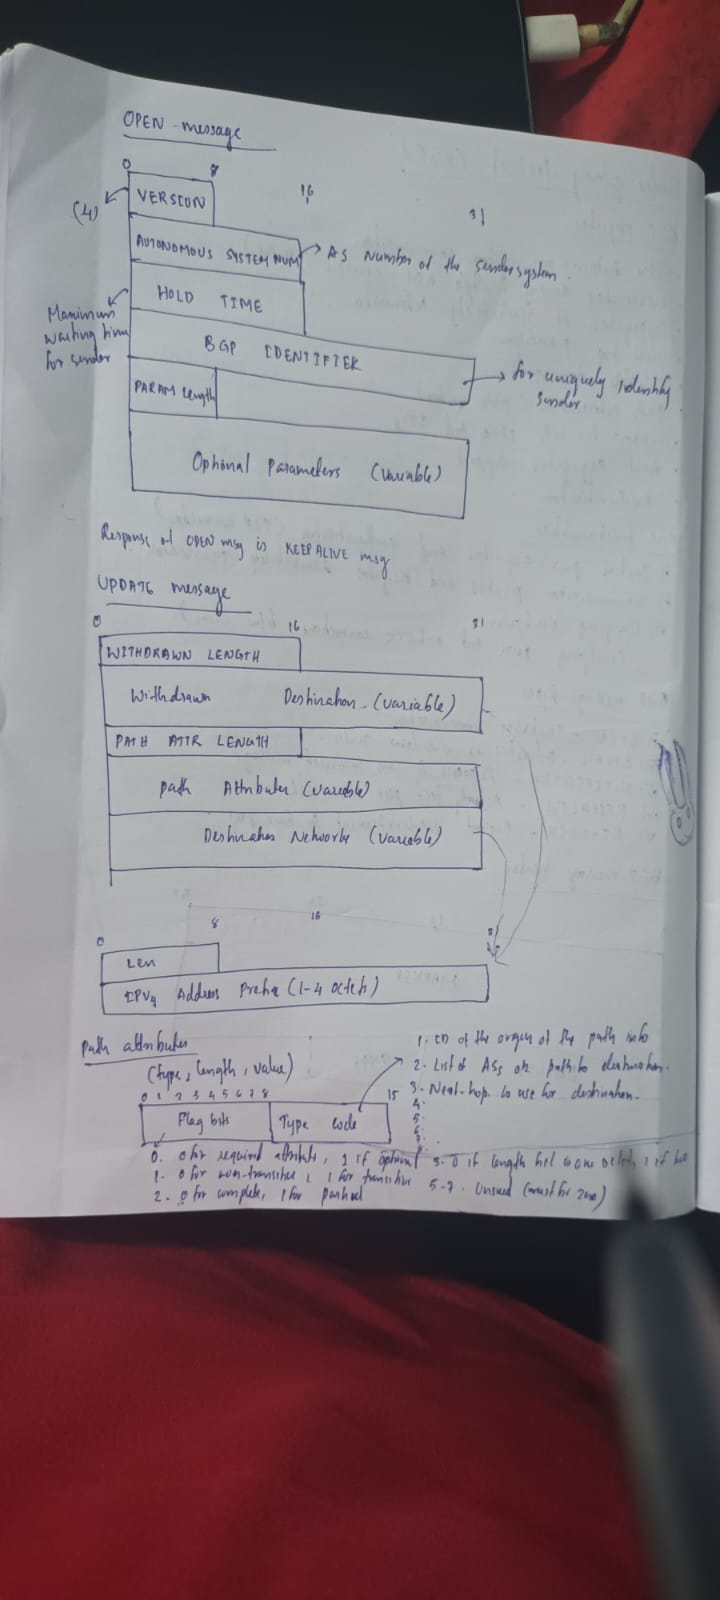 OPEN - message
0 8 16 31
(4)
VERSION
AUTONOMOUS SYSTEM NUM
AS Number of the sender system.
HOLD TIME
Maximum
waiting time
for sender
BGP IDENTIFIER
for uniquely identify
sender
PARAM Length
Optional Parameters (variable)
Response of OPEN msg is KEEPALIVE msg
UPDATE message
0 16 31
WITHDRAWN LENGTH
Withdrawn Destination - (variable)
PATH ATTR LENGTH
Path Attributes (variable)
Destination Networks (variable)
0 8 16
Len
IPV4 Address Prefix (1-4 octets)
Path attributes
(type, length, value)
0 1 2 3 4 5 6 7 8 15
Flag bits
Type code
1. ID of the origin of the path info
2. List of ASs on path to destination.
3. Next-hop to use for destination.
4.
5.
6.
0. 0 for required attribute, 1 if optional
1. 0 for non-transitive, 1 for transitive
2. 0 for complete, 1 for partial
3. 0 if length field is one octet, 1 if two
5-7. Unused (must be zero)